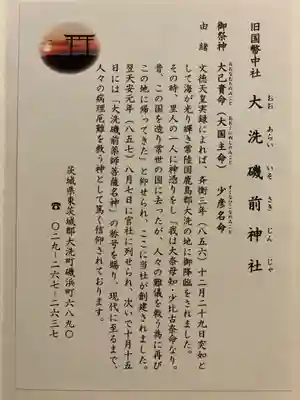 旧国幣中社
大洗磯前神社
おおあらいいそさきじんじゃ
御祭神 大己貴命(大国主命) 少彦名命
おおなむちのみこと おおくにぬしのみこと すくなひこなのみこと
由緒
文徳天皇実録によれば、斉衡三年(八五六)十二月二十九日突如と
して海が光り輝き常陸国鹿島郡大洗の地に御降臨をされました。
その時、里人の一人に神憑りをし「我は大奈母知・少比古奈命なり。
昔、この国を造り常世の国に去ったが、人々の難儀を救う為に再び
この地に帰ってきた」と仰せられ、ここに当社が創建されました。
翌天安元年(八五七)八月七日に官社に列せられ、次いで十月十五
日には「大洗磯前薬師菩薩名神」の称号を賜り、現代に至るまで、
人々の病理厄難を救う神として篤く信仰されております。
茨城県東茨城郡大洗町磯浜町六八九〇
☎〇二九-二六七-二六三七